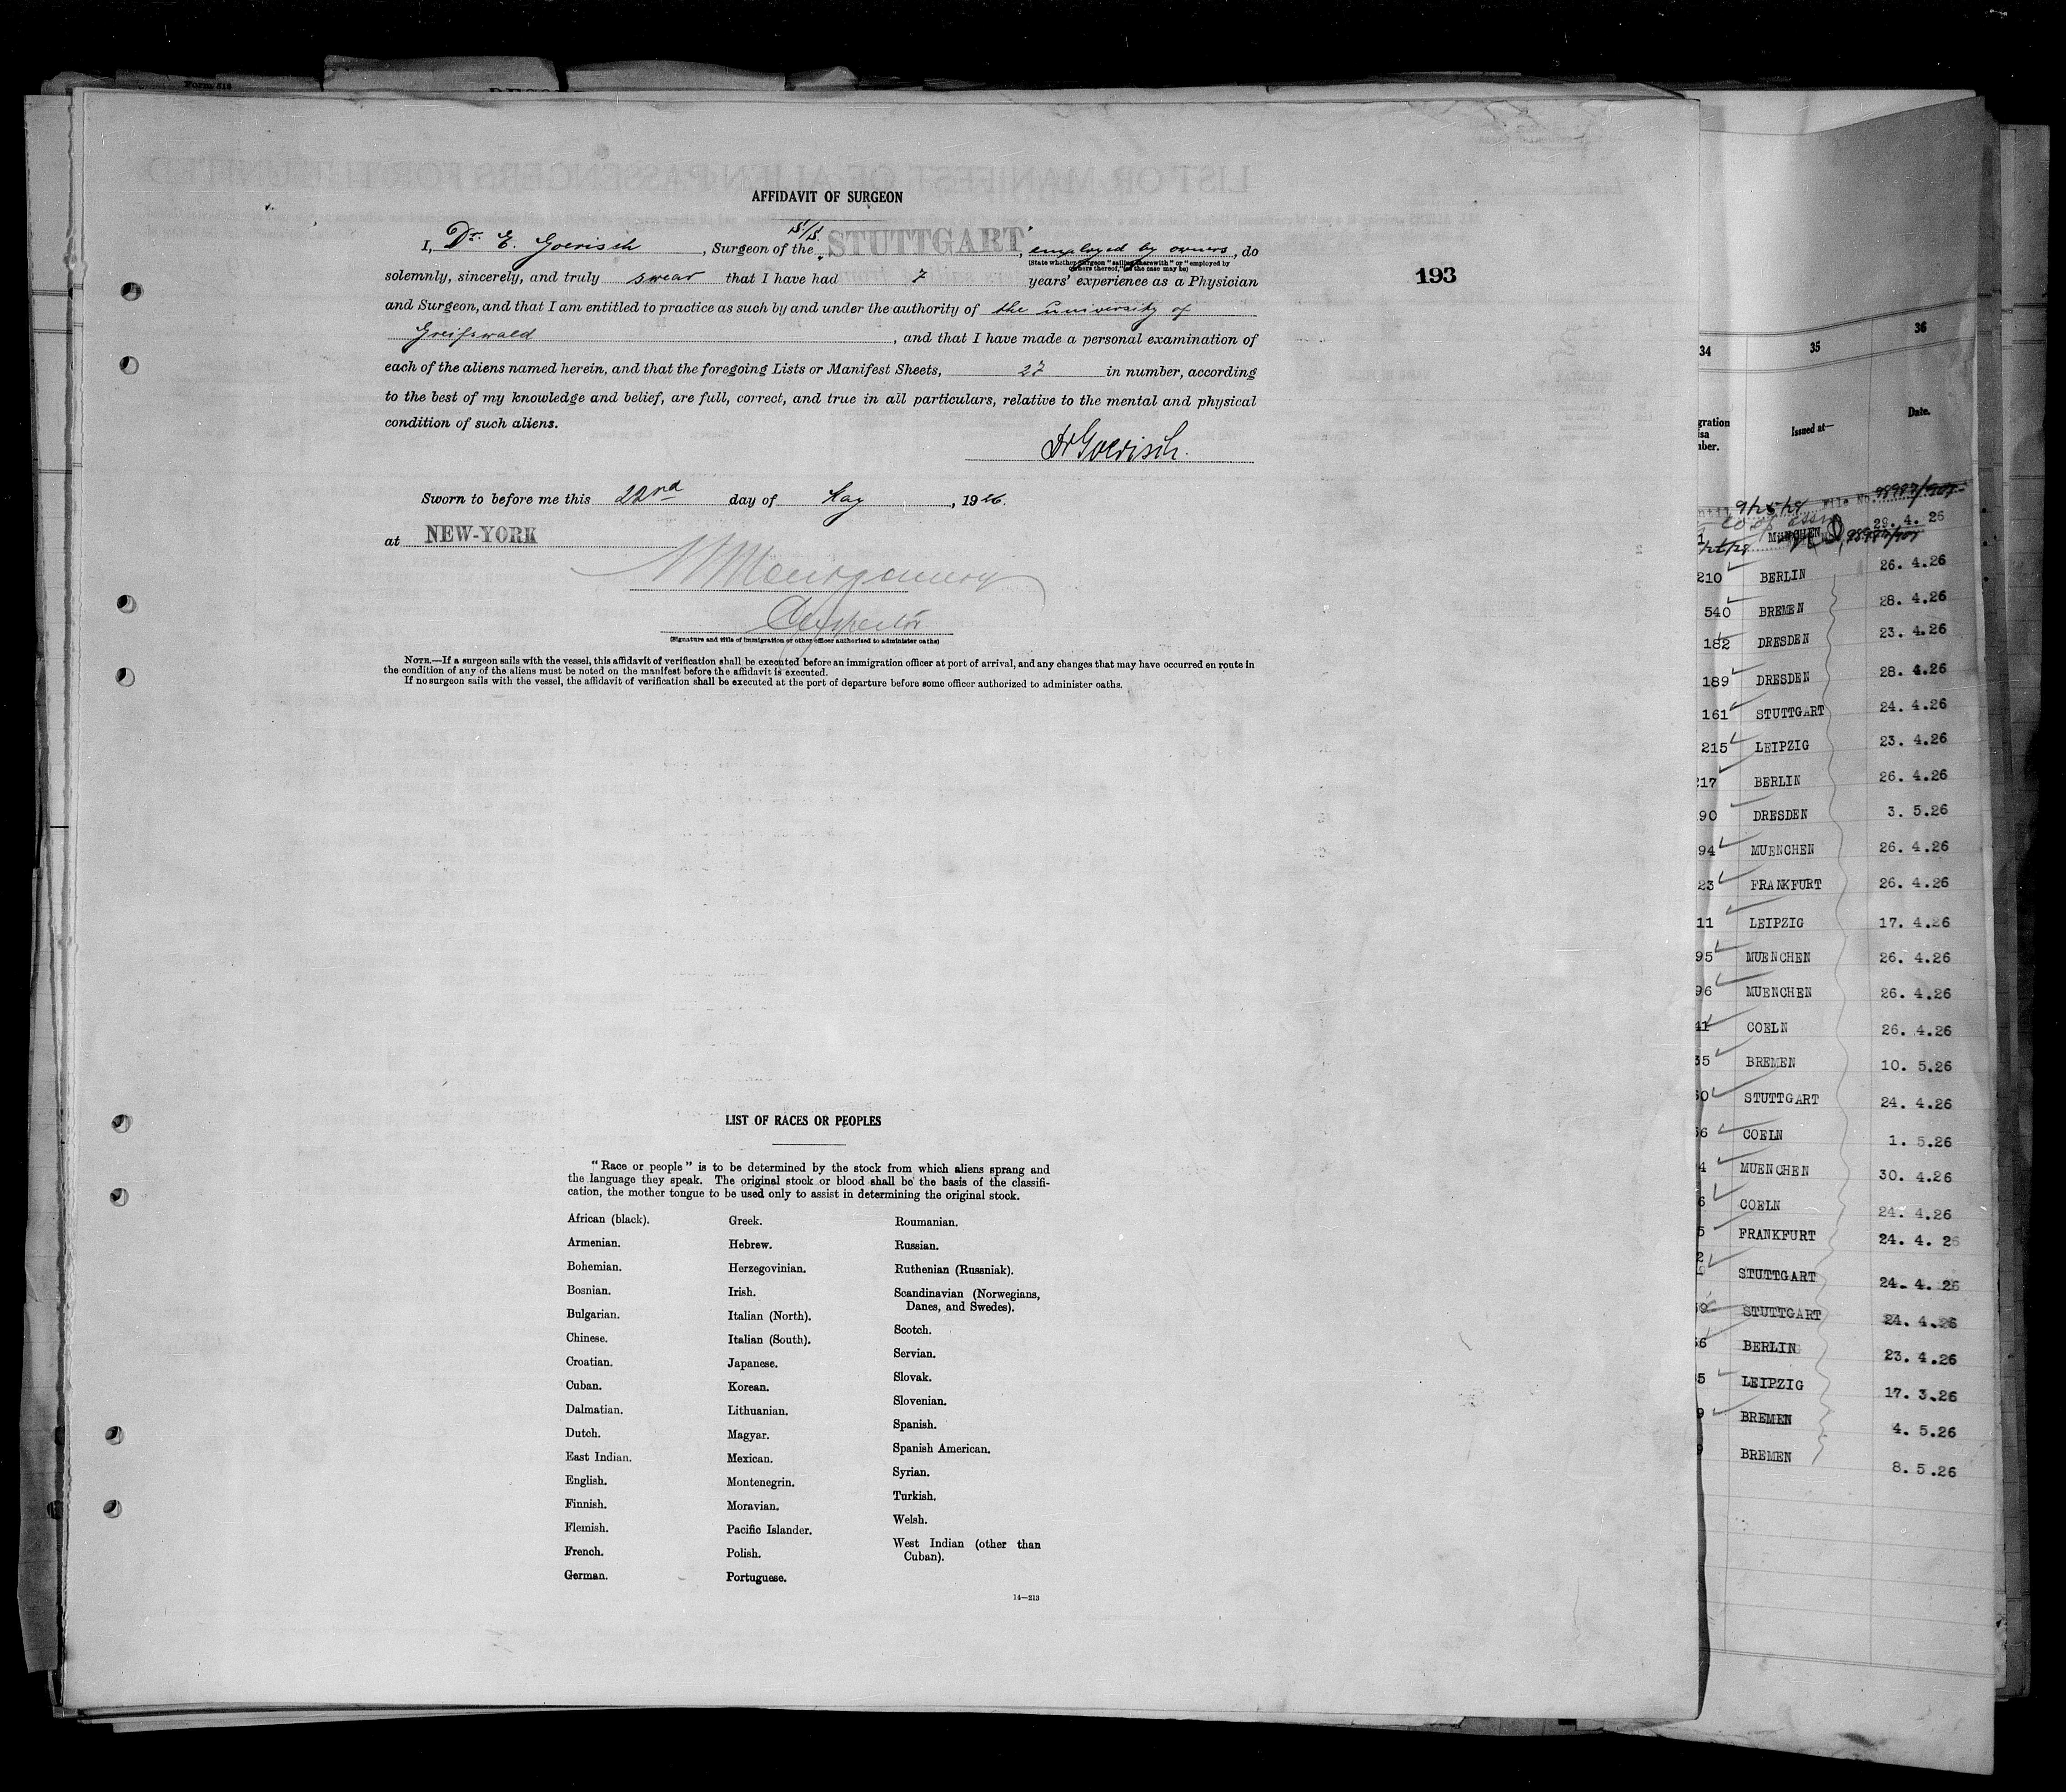 Form 518
AFFIDAVIT OF SURGEON
I, Dr. E. Goerisch, Surgeon of the S/S. "STUTTGART", employed by owners, do
(State whether Surgeon "sailing therewith" or "employed by
owners thereof," as the case may be)
solemnly, sincerely, and truly swear that I have had 7 years' experience as a Physician
and Surgeon, and that I am entitled to practice as such by and under the authority of the university of
Greifswald, and that I have made a personal examination of
each of the aliens named herein, and that the foregoing Lists or Manifest Sheets, 27 in number, according
to the best of my knowledge and belief, are full, correct, and true in all particulars, relative to the mental and physical
condition of such aliens.
Dr Goerisch.
Sworn to before me this 22nd day of May, 1926.
at NEW-YORK
Montgomery
Inspector
(Signature and title of immigration or other officer authorized to administer oaths)
NOTE.—If a surgeon sails with the vessel, this affidavit of verification shall be executed before an immigration officer at port of arrival, and any changes that may have occurred en route in
the condition of any of the aliens must be noted on the manifest before the affidavit is executed.
If no surgeon sails with the vessel, the affidavit of verification shall be executed at the port of departure before some officer authorized to administer oaths.
193
LIST OF RACES OR PEOPLES
"Race or people" is to be determined by the stock from which aliens sprang and
the language they speak. The original stock or blood shall be the basis of the classifi-
cation, the mother tongue to be used only to assist in determining the original stock.
African (black).
Armenian.
Bohemian.
Bosnian.
Bulgarian.
Chinese.
Croatian.
Cuban.
Dalmatian.
Dutch.
East Indian.
English.
Finnish.
Flemish.
French.
German.
Greek.
Hebrew.
Herzegovinian.
Irish.
Italian (North).
Italian (South).
Japanese.
Korean.
Lithuanian.
Magyar.
Mexican.
Montenegrin.
Moravian.
Pacific Islander.
Polish.
Portuguese.
Roumanian.
Russian.
Ruthenian (Russniak).
Scandinavian (Norwegians,
Danes, and Swedes).
Scotch.
Servian.
Slovak.
Slovenian.
Spanish.
Spanish American.
Syrian.
Turkish.
Welsh.
West Indian (other than
Cuban).
14—213
34 35 36
Issued at— Date.
File No.
MUNCHEN 29. 4. 26
210 BERLIN 26. 4.26
540 BREMEN 28. 4.26
182 DRESDEN 23. 4.26
189 DRESDEN 28. 4.26
161 STUTTGART 24. 4.26
215 LEIPZIG 23. 4.26
217 BERLIN 26. 4.26
90 DRESDEN 3. 5.26
94 MUENCHEN 26. 4.26
23 FRANKFURT 26. 4.26
11 LEIPZIG 17. 4.26
95 MUENCHEN 26. 4.26
96 MUENCHEN 26. 4.26
41 COELN 26. 4.26
35 BREMEN 10. 5.26
60 STUTTGART 24. 4.26
66 COELN 1. 5.26
4 MUENCHEN 30. 4.26
6 COELN 24. 4.26
5 FRANKFURT 24. 4. 26
2 STUTTGART 24. 4. 26
59 STUTTGART 24. 4.26
56 BERLIN 23. 4.26
5 LEIPZIG 17. 3.26
9 BREMEN 4. 5.26
BREMEN 8. 5.26